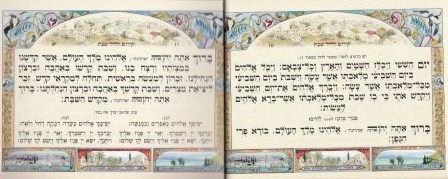 קידוש לליל שבת
יום הששי ויכלו השמים והארץ וכל־צבאם: ויכל אלהים
ביום השביעי מלאכתו אשר עשה וישבת ביום השביעי
מכל־מלאכתו אשר עשה: ויברך אלהים את־יום השביעי
ויקדש אתו כי בו שבת מכל־מלאכתו אשר־ברא אלהים
לעשות:
ברוך אתה יהוה אלהינו מלך העולם. בורא פרי
הגפן:
קידוש לליל שבת
ברוך אתה יהוה אלהינו מלך העולם. אשר קדשנו
במצותיו ורצה בנו. ושבת קדשו באהבה וברצון
הנחילנו. זכרון למעשה בראשית. תחלה למקראי קדש זכר
ליציאת מצרים. ושבת קדשך באהבה וברצון הנחלתנו. ברוך
אתה יהוה. מקדש השבת.
ישימך אלהים כאפרים וכמנשה:
ישימך אלהים כשרה רבקה רחל ולאה: